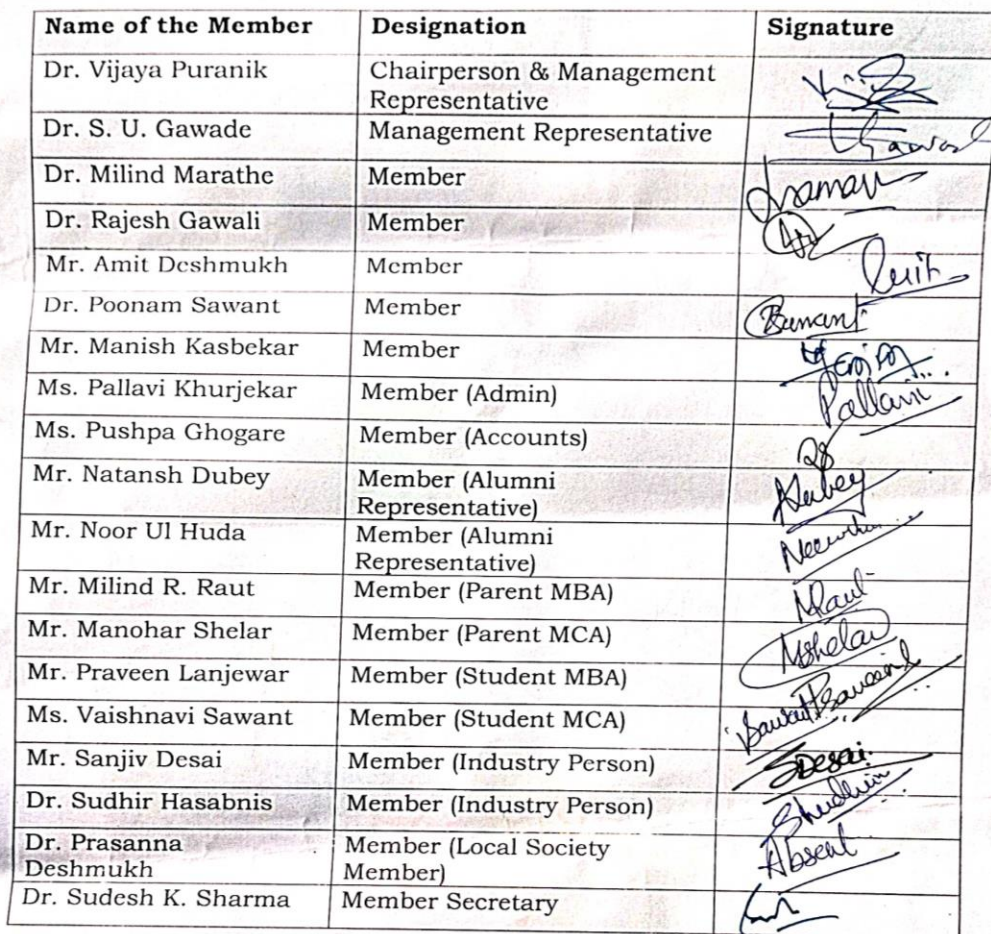 Name of the Member Designation Signature
Dr. Vijaya Puranik Chairperson & Management
Representative
Dr. S. U. Gawade Management Representative Gawad
Dr. Milind Marathe Member
Dr. Rajesh Gawali Member
Mr. Amit Deshmukh Member Amit
Dr. Poonam Sawant Member PSawant
Mr. Manish Kasbekar Member
Ms. Pallavi Khurjekar Member (Admin) Pallavi
Ms. Pushpa Ghogare Member (Accounts)
Mr. Natansh Dubey Member (Alumni
Representative) Dubey
Mr. Noor Ul Huda Member (Alumni
Representative)
Mr. Milind R. Raut Member (Parent MBA) Raut
Mr. Manohar Shelar Member (Parent MCA) MShelar
Mr. Praveen Lanjewar Member (Student MBA) Praveen
Ms. Vaishnavi Sawant Member (Student MCA) Sawant
Mr. Sanjiv Desai Member (Industry Person) SDesai
Dr. Sudhir Hasabnis Member (Industry Person)
Dr. Prasanna Member (Local Society
Deshmukh Member) Absent
Dr. Sudesh K. Sharma Member Secretary